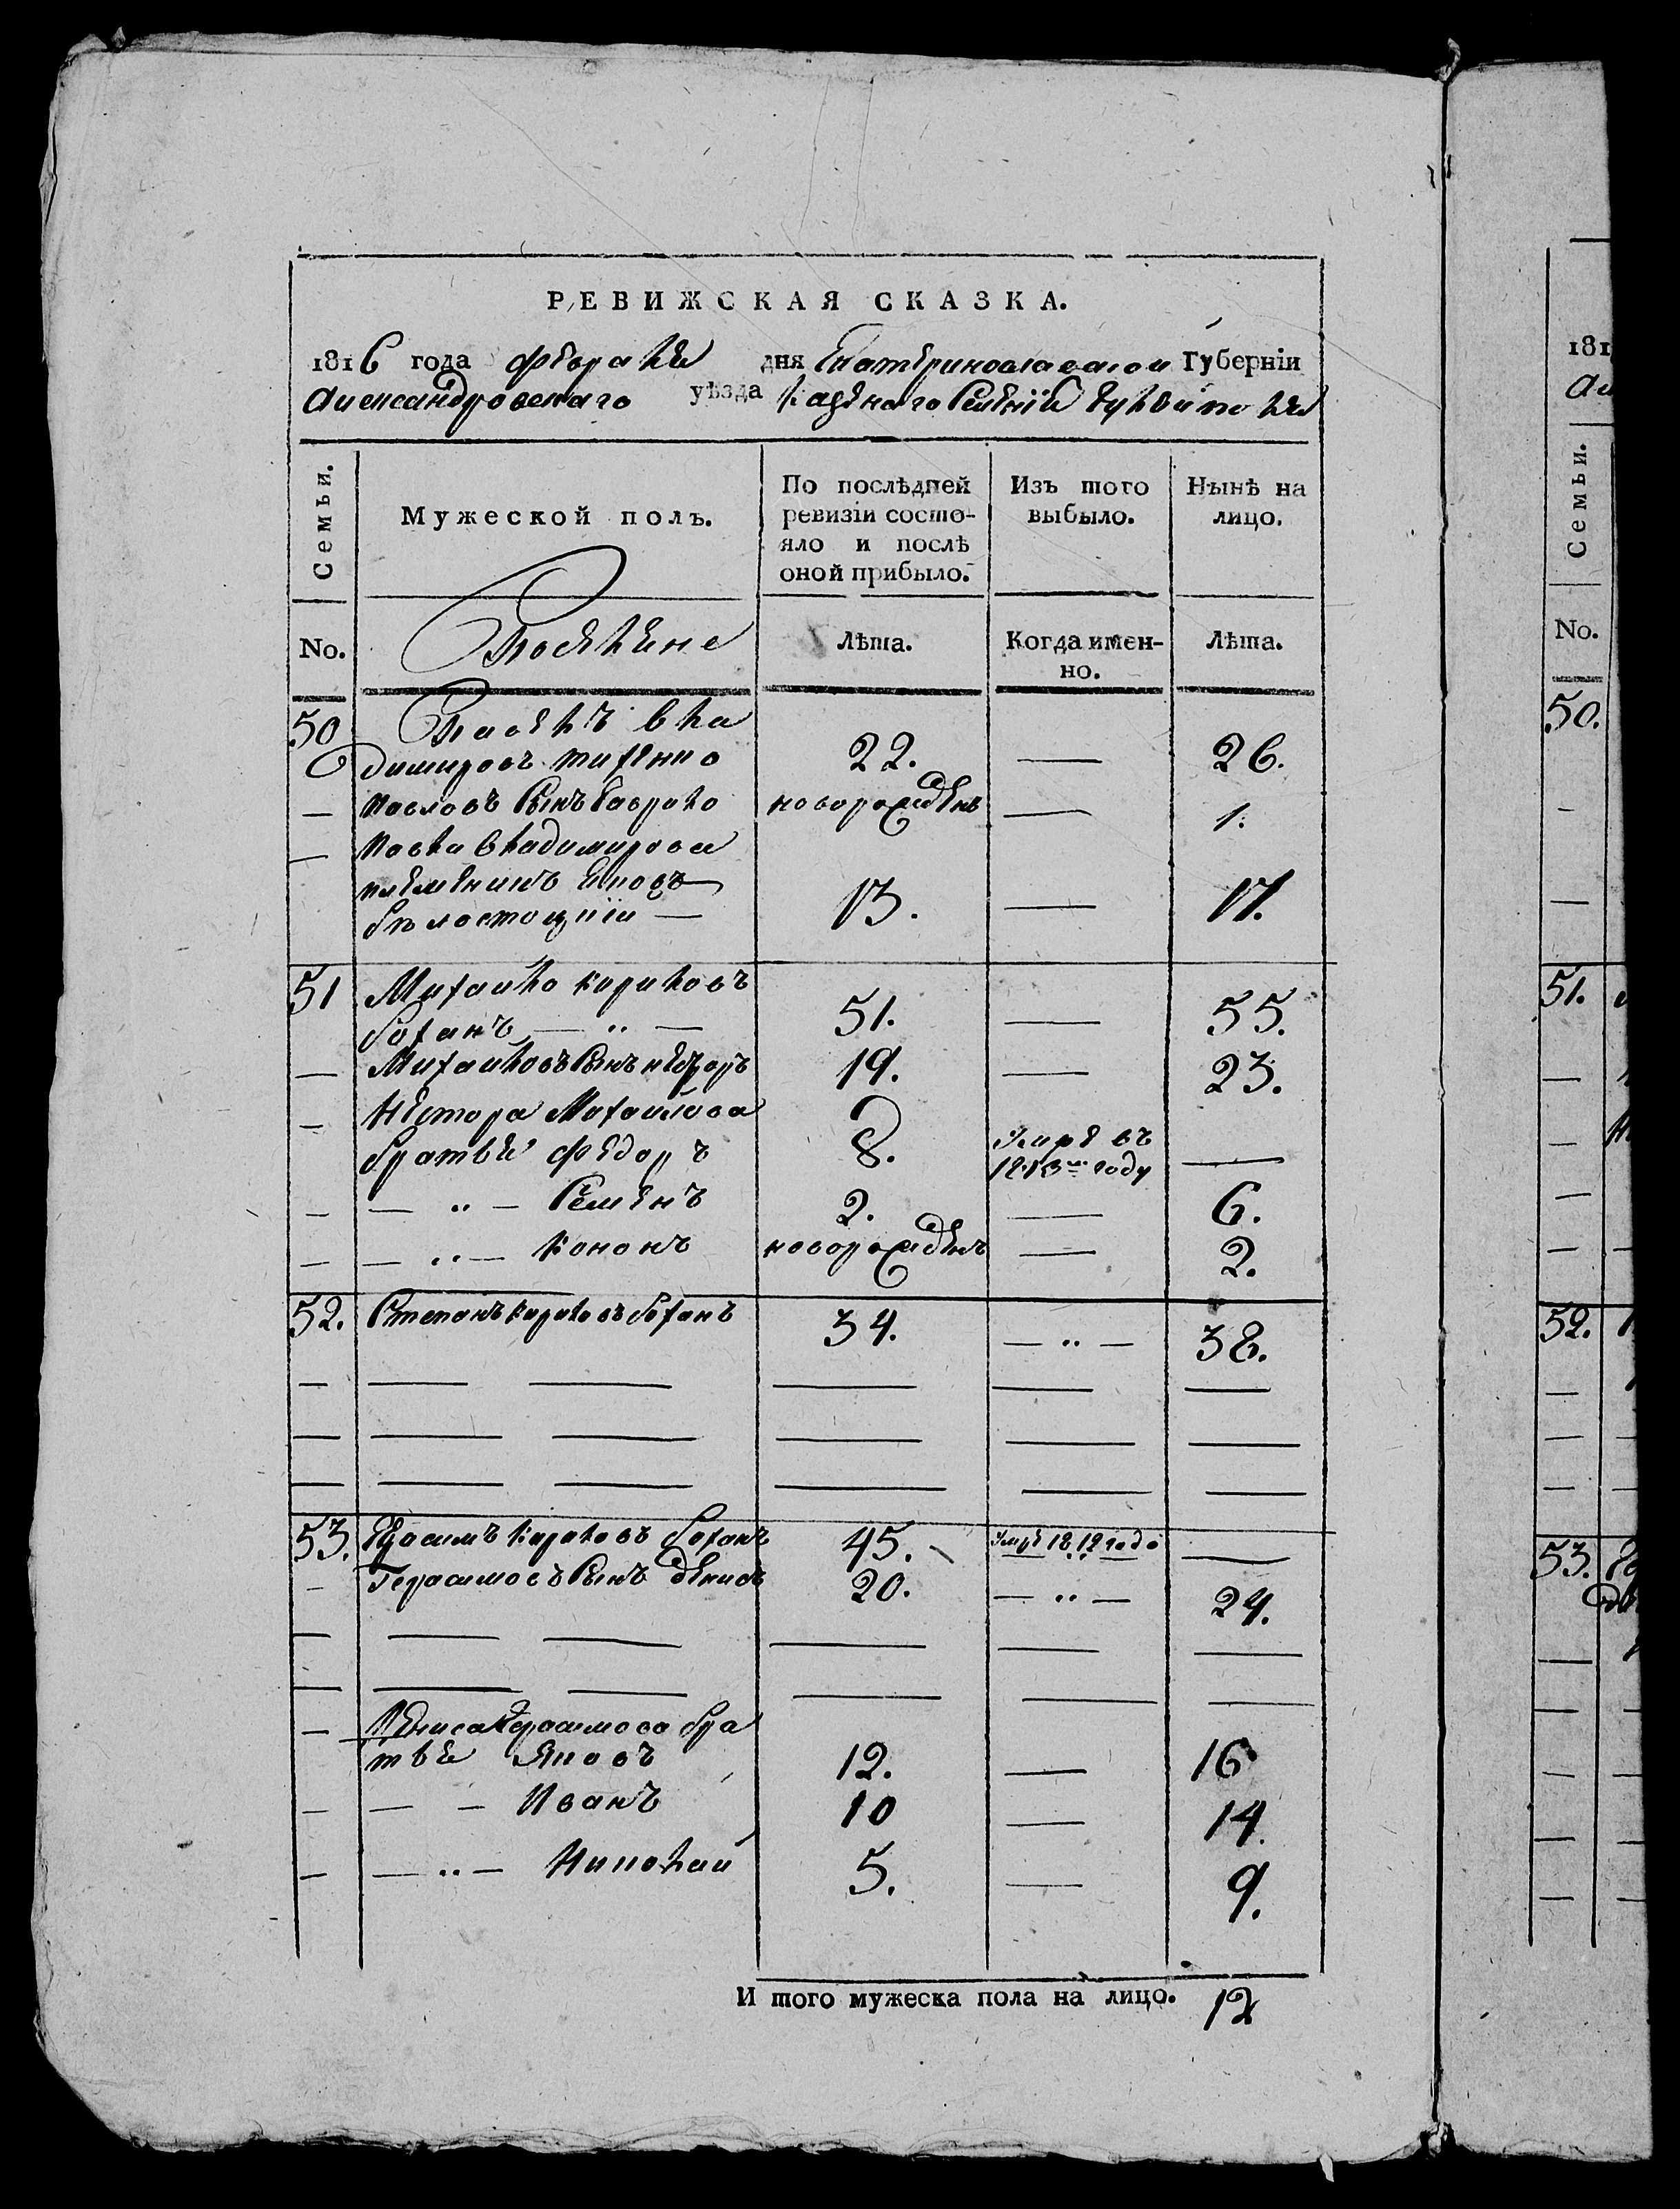 РЕВИЖСКАЯ СКАЗКА.
1816 года февраля дня Екатеринославской Губерніи
Александровского уѣзда казенного Селенія
Семьи.
Мужеской полъ.
По послѣдней ревизіи состо-
яло и послѣ
оной прибыло.
Изъ того
выбыло.
Нынѣ на
лицо.
No.
Поселяне
Лѣта.
Когда имен-
но.
Лѣта.
50 Павелъ Вла
димировъ 22. — 26.
— Павловъ Сынъ Гаврило новорожденъ — 1.
— Павла Владимирова
племеникъ
13. — 17.
51 Михайло Кириловъ
Боханъ — „ — 51. — 55.
— Михайловъ Сынъ Несторъ 19. — 23.
— Нестора Михайлова
братья Федоръ 8. Умре въ 1813м году —
— — „ — Семенъ 2. — 6.
— — „ — Кононъ новорожденъ — 2.
52. Степанъ Кириловъ Боханъ 34. — „ — 38.
53. Герасимъ Кириловъ Боханъ 45. Умре 1812 годо —
— Герасимовъ Сынъ Денисъ 20. — „ — 24.
— Дениса Герасимова бра
тья Яковъ 12. — 16
— — — Иванъ 10 — 14.
— — „ — Николай 5. — 9.
И того мужеска пола на лицо. 12
181
Семьи.
No.
50.
51.
52.
53.